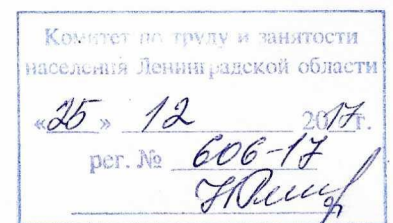 Комитет по труду и занятости
населения Ленинградской области
«25» 12 2017г.
рег. № 606-17